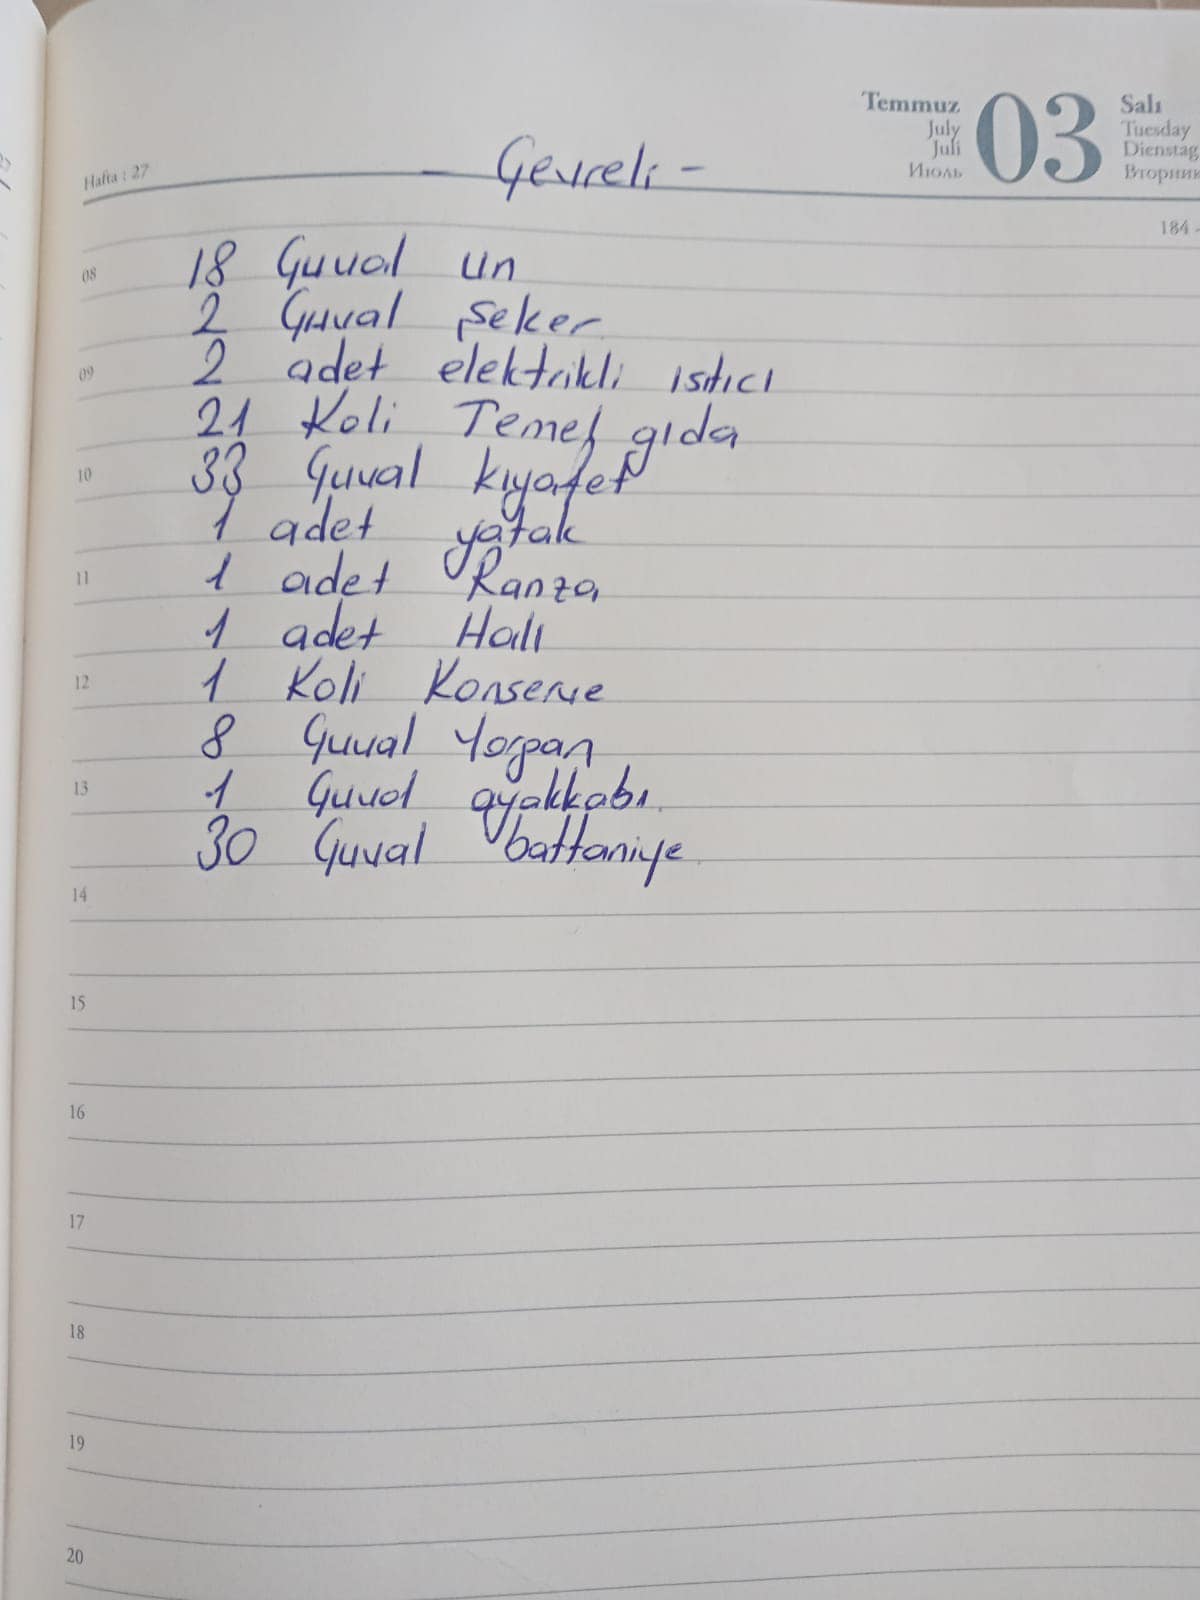 Temmuz
July
Juli
Июль
03
Salı
Tuesday
Dienstag
Вторник
Hafta : 27
- Çevreli -
184 -
08
18 Çuval un
2 Çuval şeker
09
2 adet elektrikli ısıtıcı
21 Koli Temel gıda
10
33 Çuval kıyafet
1 adet yatak
11
1 adet Ranza
1 adet Halı
12
1 Koli Konserve
8 Çuval Yorgan
13
1 Çuval ayakkabı
30 Çuval battaniye
14
15
16
17
18
19
20